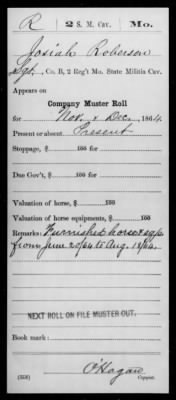 R 2 S. M. Cav. Mo.
Josiah Roberson
Sgt., Co. B, 2 Reg't Mo. State Militia Cav.
Appears on
Company Muster Roll
for Nov. & Dec., 1864.
Present or absent Present
Stoppage, $ 100 for
Due Gov't, $ 100 for
Valuation of horse, $ 100
Valuation of horse equipments, $ 100
Remarks: Furnished horse & eqp.
from June 20/64 to Aug. 18/64.
NEXT ROLL ON FILE MUSTER OUT.
Book mark:
O'Hagan
(358) Copyist.